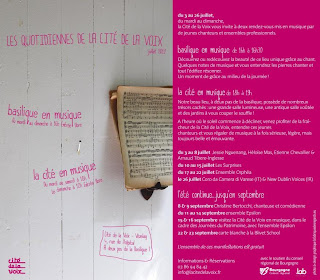 LES QUOTIDIENNES DE LA CITÉ DE LA VOIX
juillet 2022
basilique en musique
du mardi au dimanche à 16h (entrée libre)
la cité en musique
du mardi au samedi à 18h &
les dimanches à 15h (entrée libre)
Cité de la Voix - Vézelay
4, rue de l'hôpital
(à deux pas de la Basilique)
cité
de la
voix
du 3 au 26 juillet,
du mardi au dimanche,
la Cité de la Voix vous invite à deux rendez-vous mis en musique par
de jeunes chanteurs et ensembles professionnels.
basilique en musique de 16h à 16h30
Découvrez ou redécouvrez la beauté de ce lieu unique grâce au chant.
Quelques notes de musique et vous entendrez les pierres chanter et
tout l'édifice résonner.
Un moment de grâce au milieu de la journée !
la cité en musique de 18h à 19h
Notre beau lieu, à deux pas de la basilique, possède de nombreux
trésors cachés: une grande salle lumineuse, une antique salle voûtée
et des jardins à vous couper le souffle !
A l'heure où le soleil commence à décliner, venez profiter de la fraî-
cheur de la Cité de la Voix, entendre ces jeunes
chanteurs et vous régaler de musique à la fois sérieuse, légère, mais
toujours belle et émouvante.
du 3 au 8 juillet
Les Surprises
du 17 au 22 juillet Ensemble Céphéa
le 26 juillet Coro da Camera di Varese (IT) & New Dublin Voices (IR)
l'été continue...jusqu'en septembre
8 & 9 septembre Christine Bertocchi, chantante et comédienne
du 11 au 14 septembre ensemble Epsilon
15 & 16 septembre visitez la Cité de la Voix en musique, dans le
cadre des Journées du Patrimoine, avec l'ensemble Epsilon
22 & 23 septembre carte blanche à la Blivet School
L'ensemble de ces manifestations est gratuit
Informations & Réservations
03 86 94 84 40
info@lacitedelavoix.net
avec le soutien du conseil
régional de Bourgogne
Bourgogne
lab